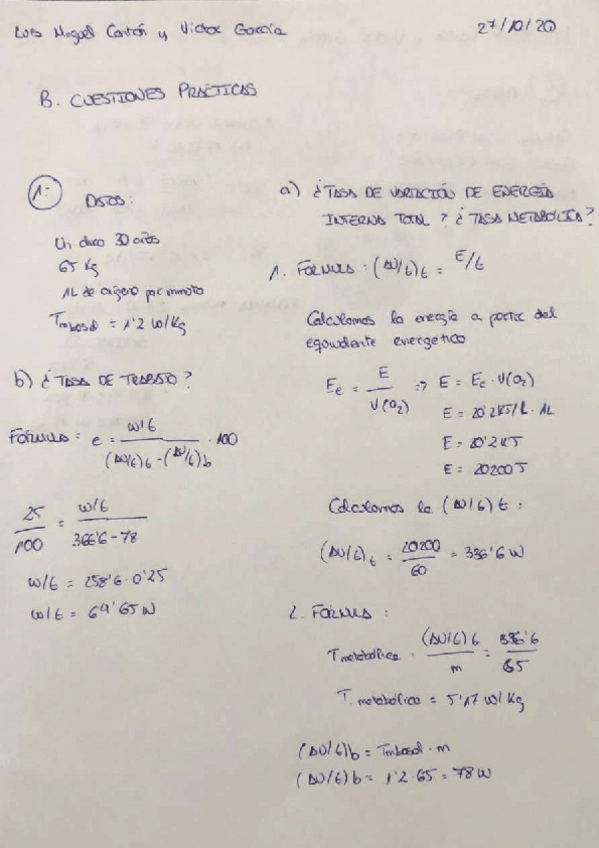 Luis Miguel Cantón y Victor García 27/10/20
B. CUESTIONES PRÁCTICAS
1:
DATOS:
Un chico 30 años
65 Kg
1L de oxígeno por minuto
Tmbasal = 1'2 W/Kg
b) ¿TASA DE TRABAJO?
FÓRMULA: e = W/t / ((ΔU/t)t - (ΔU/t)b) · 100
25/100 = W/t / (336'6 - 78)
W/t = 258'6 · 0'25
W/t = 64'65 W
a) ¿TASA DE VARIACIÓN DE ENERGÍA
INTERNA TOTAL? ¿TASA METABÓLICA?
1. FÓRMULA: (ΔU/t)t = E/t
Calculamos la energía a partir del
equivalente energético
Ee = E / V(O₂) => E = Ee · V(O₂)
E = 20'2 KJ/L · 1L
E = 20'2 KJ
E = 20200 J
Calculamos la (ΔU/t)t:
(ΔU/t)t = 20200/60 = 336'6 W
2. FÓRMULA:
T metabólica = (ΔU/t)t / m = 336'6 / 65
T. metabólica = 5'17 W/Kg
(ΔU/t)b = Tmbasal · m
(ΔU/t)b = 1'2 · 65 = 78 W